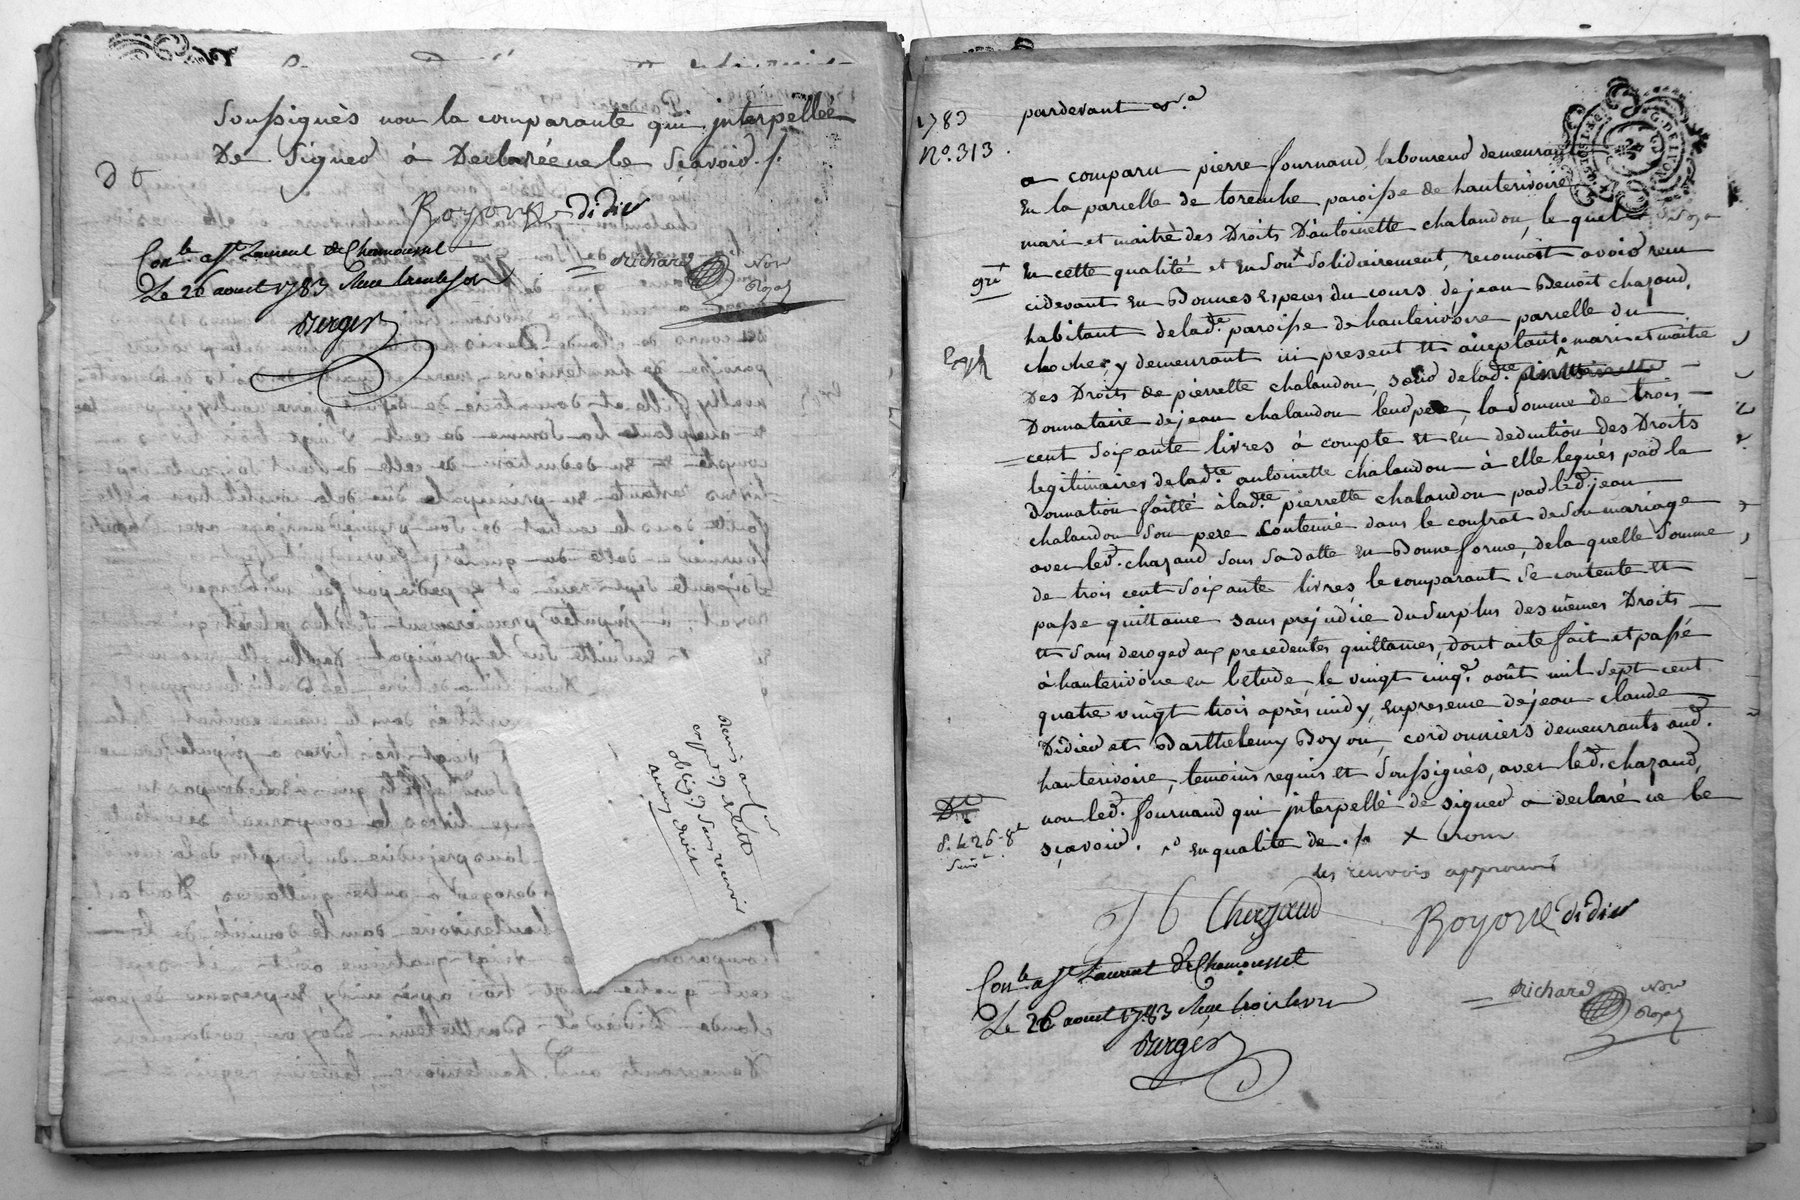 soussignés non la comparante qui interpellée
De signer à Declarée ne le sçavoir ./.
Boyon Didier
Con.le a St Laurent de Chamousset
Le 26 aoust 1783
Richard Not Royal
Verger
obligé
aucun droit
1783
N.o 313.
pardevant &.a
a comparu pierre fournand, laboureur demeurant
En la parcelle de torenche paroisse de hauterivoire
mari et maitre des Droits D'antoinette chalandon, le quel
En cette qualité et en son x solidairement, reconnoit avoir reçu
cidevant En Bonnes Especes du cours de jean Benoit chazaud,
habitant de lad.e paroisse de hauterivoire parcelle du
chocher, y demeurant ici present et acceptant mari et maitre
Des Droits de pierrette chalandon, solid de lad.te
Donnataire de jean chalandon leur pere, la somme de trois
cent soixante livres à compte et en deduction des Droits
legitimaires de lad.te antoinette chalandon à elle legués par la
Donnation faitte à lad.te pierrette chalandon par led. jean
chalandon son pere Contenüe dans le contrat de son mariage
avec led. chazaud sous sa datte En Bonne forme, de la quelle somme
de trois cent soixante livres, le comparant se contente et
passe quittance sans prejudice du surplus des mêmes Droits
et sans deroger aux precedentes quittances, dont acte fait et passé
à hauterivoire en l'etude, le vingt cinq.e août mil sept cent
quatre vingt trois après midy, en presence de jean claude
Didier et Barthelemy Boyon, cordonniers demeurants aud.
hauterivoire, temoins requis et soussignés, avec led. chazaud,
non led. fournand qui interpellé de signer a declaré ne le
sçavoir. en qualité de ./. x nom
les renvois approuvés
J B Chazaud
Boyon Didier
Con.le a St Laurent de Chamousset
Le 26 aoust 1783 Reçu trois livres
Richard Not Royal
Verger